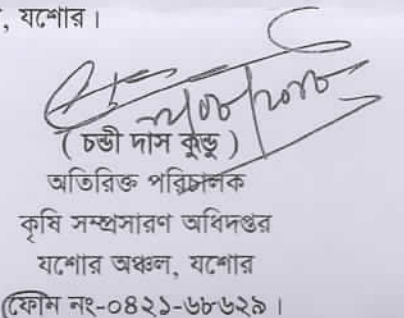 , যশোর।
( চন্ডী দাস কুন্ডু )
অতিরিক্ত পরিচালক
কৃষি সম্প্রসারণ অধিদপ্তর
যশোর অঞ্চল, যশোর
ফোন নং-০৪২১-৬৮৬২৯।